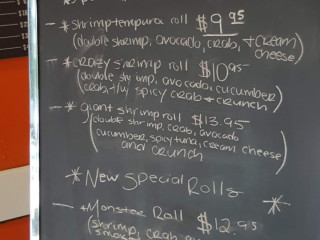 - * shrimp tempura roll $9.95
(double shrimp, avocado, crab, + cream cheese)
- * crazy shrimp roll $10.95
(double shrimp, avocado, cucumber
crab, spicy crab + crunch)
- * giant shrimp roll $13.95
(double shrimp, crab, avocado
cucumber, spicy tuna, cream cheese)
and crunch
* New Special Rolls *
- * Monster Roll $12.95
(shrimp, crab,